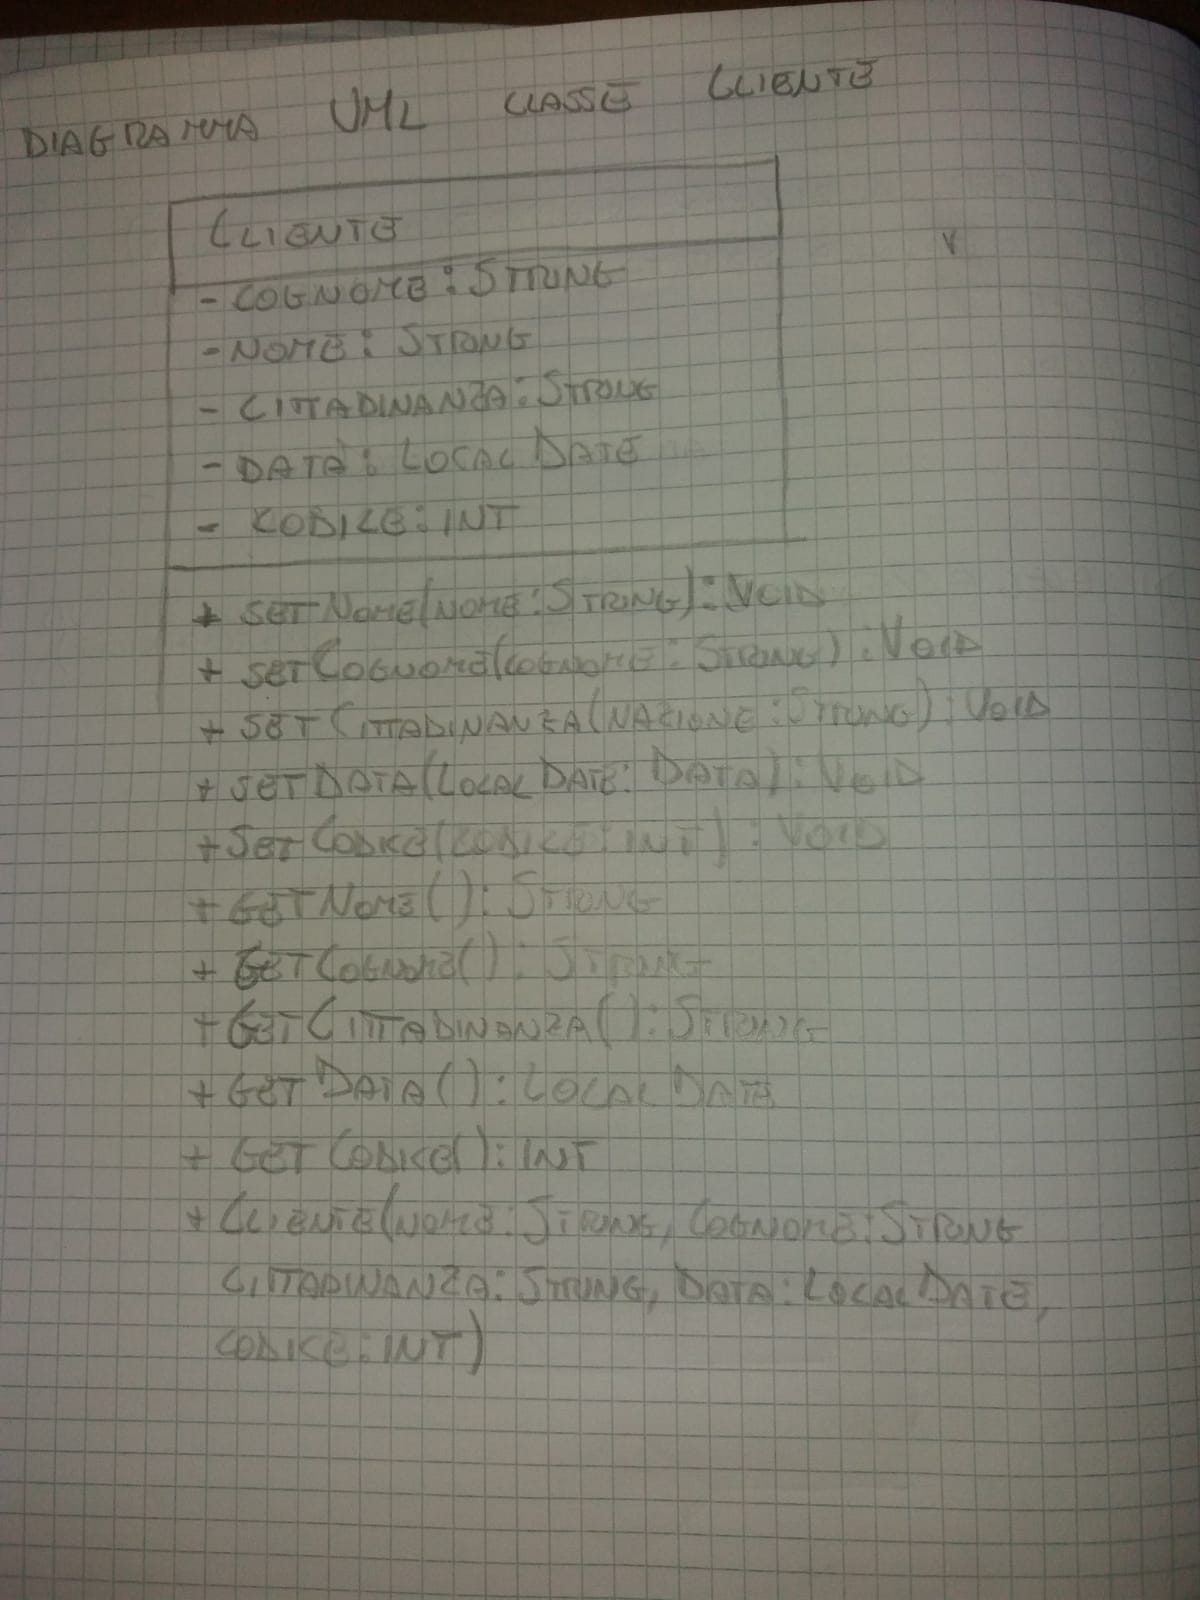 DIAGRAMMA UML CLASSE CLIENTE
CLIENTE
- COGNOME: STRING
- NOME: STRING
- CITTADINANZA: STRING
- DATA: LOCALDATE
- CODICE: INT
+ SETNOME(NOME: STRING): VOID
+ SETCOGNOME(COGNOME: STRING): VOID
+ SETCITTADINANZA(NAZIONE: STRING): VOID
+ SETDATA(LOCALDATE: DATA): VOID
+ SETCODICE(CODICE: INT): VOID
+ GETNOME(): STRING
+ GETCOGNOME(): STRING
+ GETCITTADINANZA(): STRING
+ GETDATA(): LOCALDATE
+ GETCODICE(): INT
+ CLIENTE(NOME: STRING, COGNOME: STRING
CITTADINANZA: STRING, DATA: LOCALDATE,
CODICE: INT)